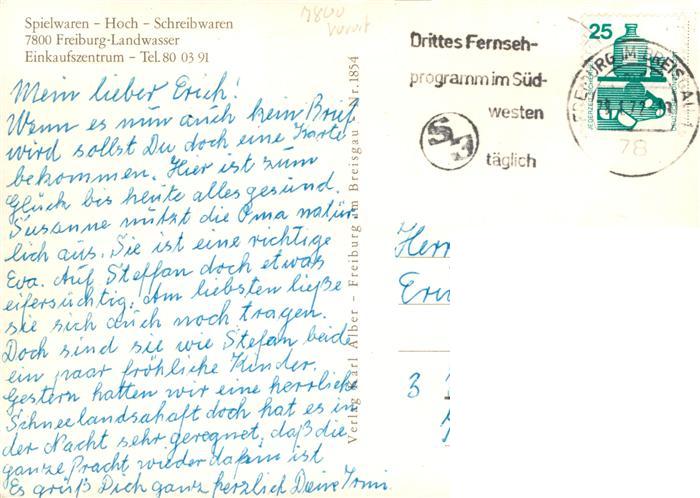 Spielwaren - Hoch - Schreibwaren
7800 Freiburg-Landwasser
Einkaufszentrum - Tel. 80 03 91
7800
Mein lieber Erich!
Wenn es nun auch kein Brief
wird sollst Du doch eine Karte
bekommen. Hier ist zum
Glück bis heute alles gesund.
Susanne nützt die Oma natür-
lich aus. Sie ist eine richtige
Eva. Auf Steffan doch etwas
eifersüchtig. Am liebsten ließe
sie sich auch noch tragen.
Doch sind sie wie Stefan beide
ein paar fröhliche Kinder.
Gestern hatten wir eine herrliche
Schneelandschaft doch hat es in
der Nacht sehr geregnet, daß die
ganze Pracht wieder dahin ist
Es grüß Dich ganz herzlich Deine Irmi
Verlag Karl Alber - Freiburg im Breisgau Nr. 1854
Drittes Fernseh-
programm im Süd-
westen
S3
täglich
25
FREIBURG IM BREISGAU
78
Herr
3